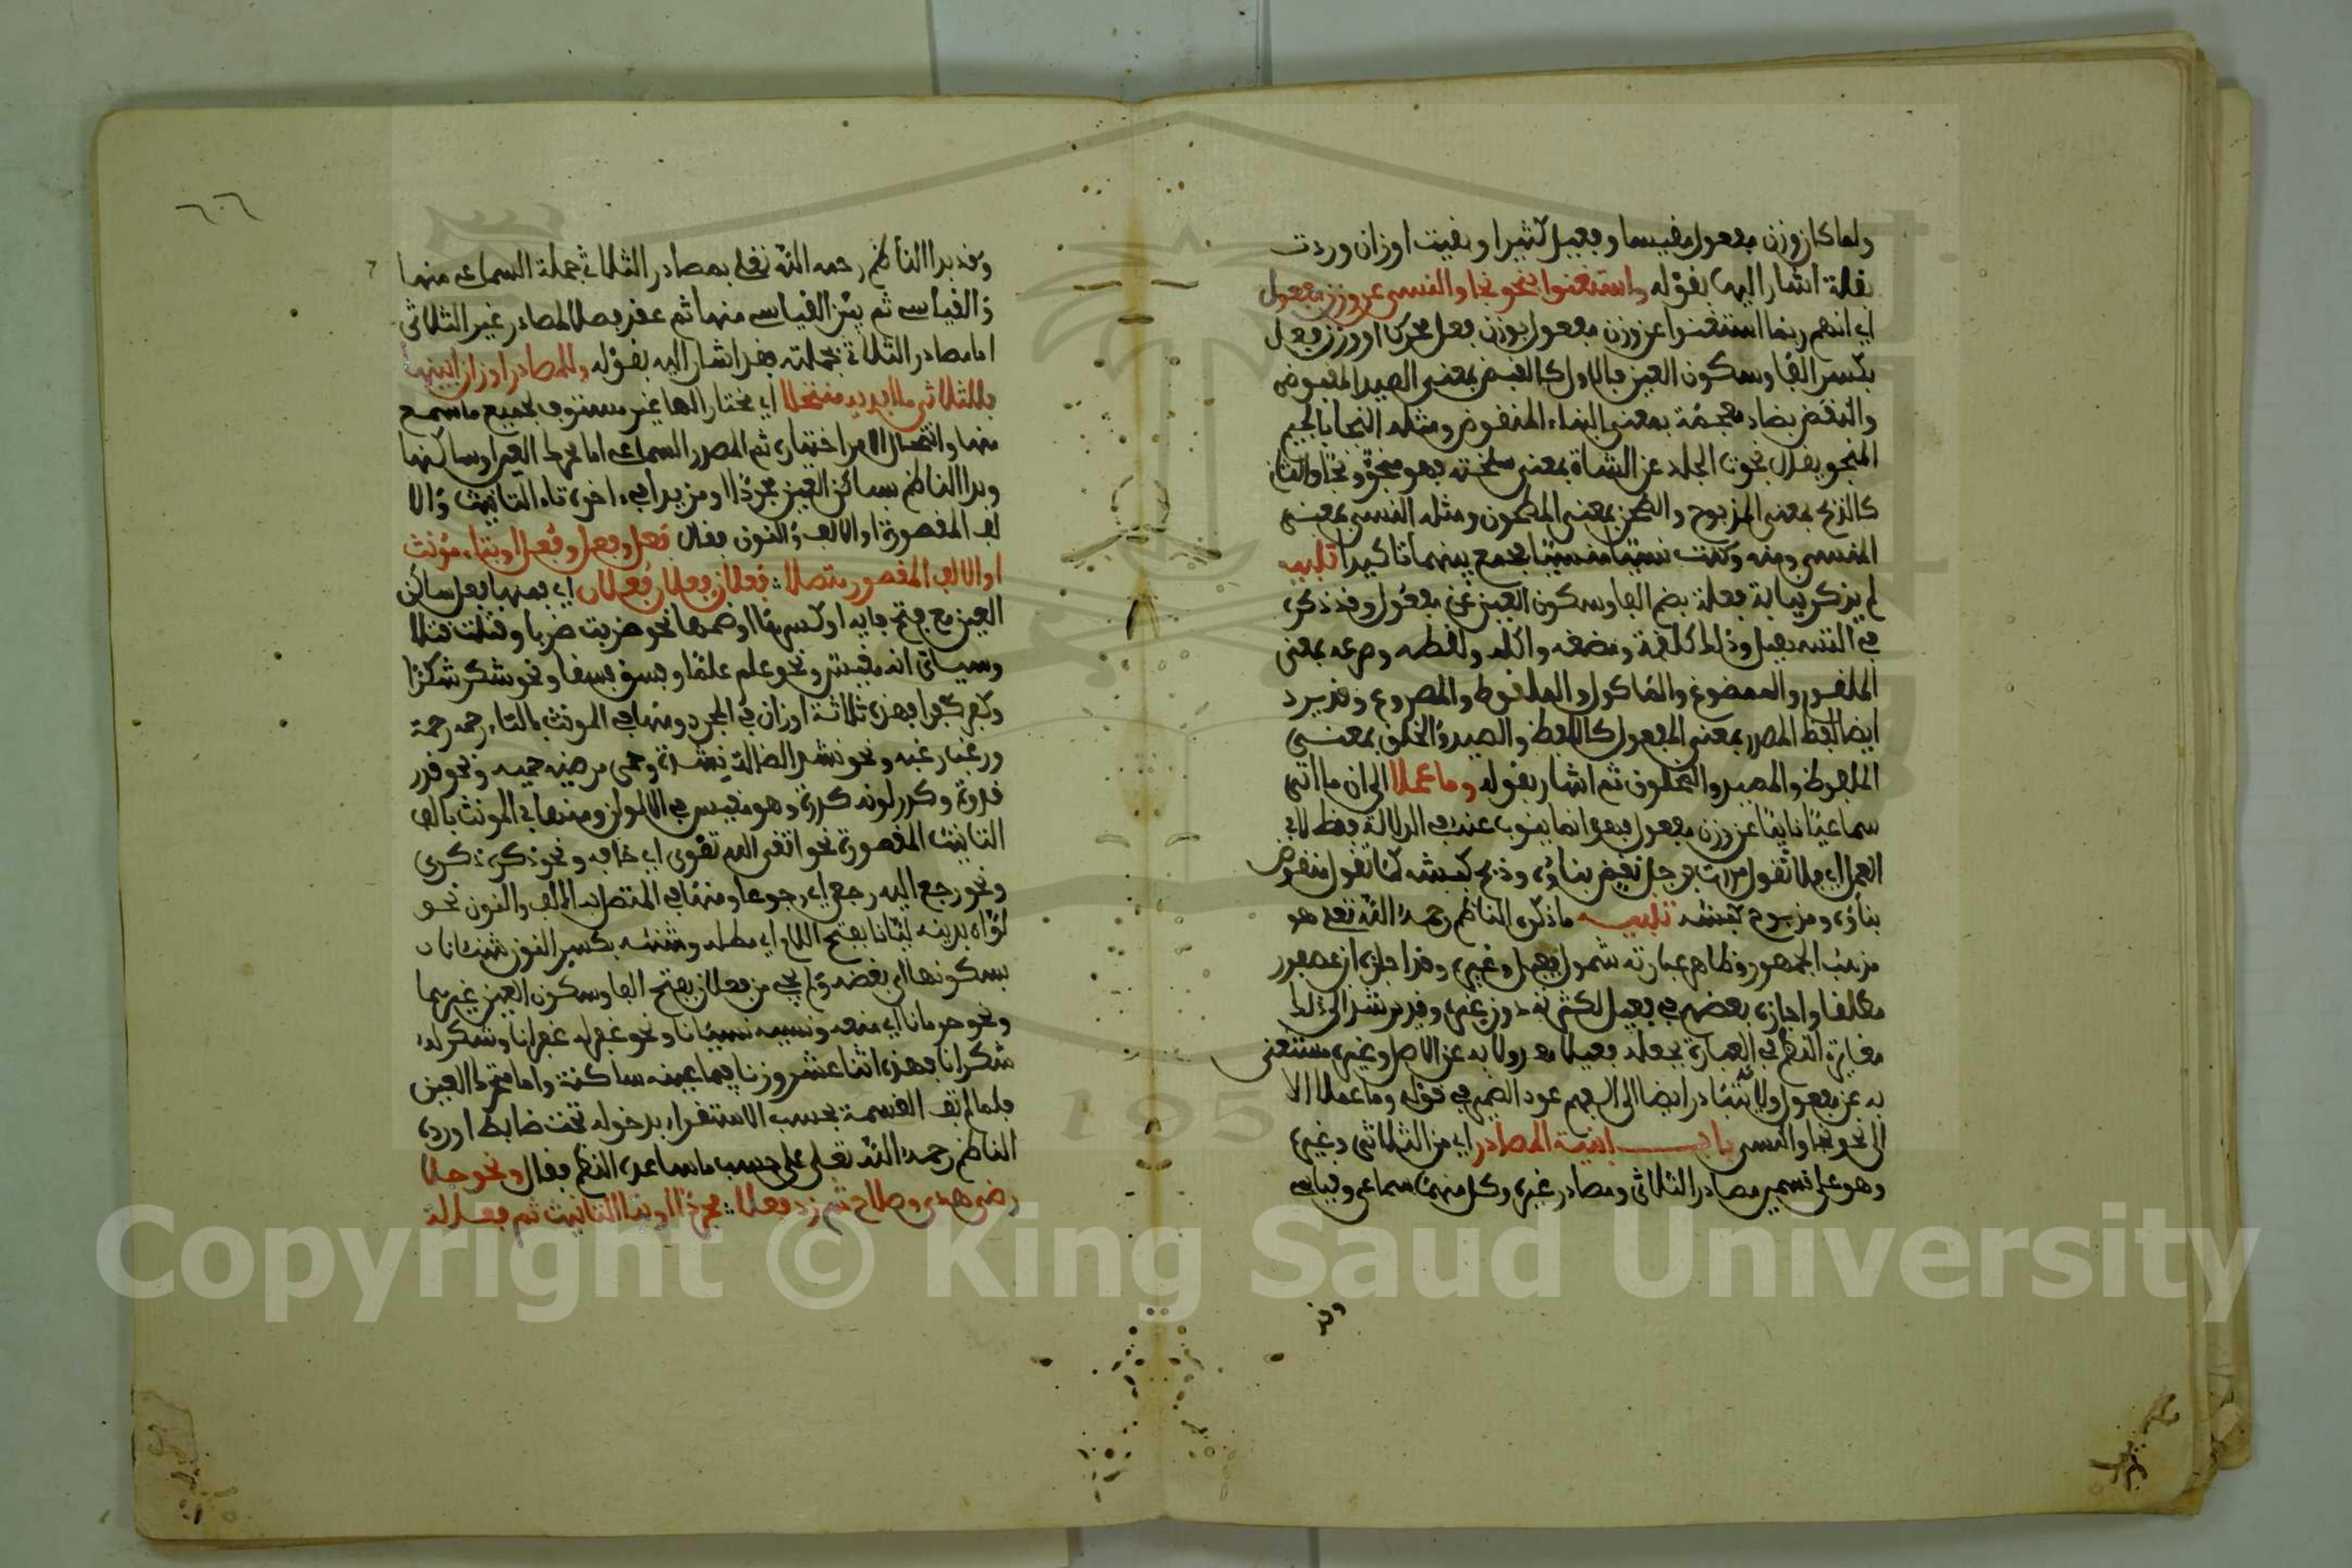 ولما كان وزن مفعول مقيسا وفعيل كثيرا وبقيت اوزان وردت
بقلة اشار اليها بقوله واستغنوا بنحو نجا والنسي عن وزن مفعول
اي انهم ربما استغنوا عن وزن مفعول بوزن فعل محركا او وزن فعل
بكسر الفا وسكون العين فالاول كالقبض بمعنى الصيد المقبوض
والنقض بضاد معجمة بمعنى البناء المنقوض ومثله النجا بالجيم
المنجو يقال نجوت الجلد عن الشاة بمعنى سلخته فهو منجو ونجا والثاني
كالذبح بمعنى المذبوح والطحن بمعنى المطحون ومثله النسي بمعنى
المنسي ومنه وكنت نسيا منسيا فجمع بينهما تاكيدا تنبيه
لم يذكر نيابة فعلة بضم الفا وسكون العين عن مفعول وقد ذكره
في التسهيل وذلك كلقمة ومضغه واكله ولقطه وصرعه بمعنى
الملقوم والممضوغ والماكول والملقوط والمصروع وقد يرد
ايضا لفظ المصدر بمعنى المفعول كاللفظ والصيد والخلق بمعنى
الملفوظ والمصيد والمخلوق ثم اشار بقوله وما عملا الى ان ما اتى
سماعيا نايبا عن وزن مفعول فهو انما ينوب عنه في الدلالة فقط لا في
العمل اي فلا تقول مررت برجل نقض بناؤه وذبح كبشه كما تقول منقوض
بناؤه ومذبوح كبشه تنبيه ما ذكره الناظم رحمه الله تعلى هو
مذهب الجمهور وظاهر عبارته شمول فعيل وغيره وقد اجازه ابن عصفور
مطلقا واجازه بعضهم في فعيل لكثرته دون غيره وقد يرشد الى ذلك
مغايرة النظم في العبارة بجعله فعيلا معدولا به عن الاصل وغيره مستغنى
به عن مفعول ولانه يتبادر ايضا الى الفهم عود الضمير في قوله وما عملا الا
الى نحو نجا والنسي باب ابنية المصادر اي من الثلاثي وغيره
وهو على قسمين مصادر الثلاثي ومصادر غيره وكل منهما سماعي وقياسي
وقد
وقد بدا الناظم رحمه الله تعلى بمصادر الثلاثي جملة السماعي منها
والقياسي ثم بين القياسي منها ثم عقد فصلا لمصادر غير الثلاثي
اما مصادر الثلاثي بجملته فقد اشار اليه بقوله وللمصادر اوزان ابينها
فللثلاثي ما ابديه منتخلا اي مختارا لها غير مستوف لجميع ما سمع
منها وانتخال الامر اختياره ثم المصدر السماعي اما محرك العين او ساكنها
وبدا الناظم بساكن العين مجردا او مزيدا في اخره تاء التانيث والا
لف المقصورة او الالف والنون فقال فعل وفعل وفعل او بتاء مؤنث
او الالف المقصور متصلا : فعلان فعلان فعلان اي فمنها فعل ساكن
العين مع فتح فايه او كسرها او ضمها نحو ضربت ضربا وقتلت قتلا
وسياتي انه مقيس ونحو علم علما وفسق فسقا ونحو شكر شكرا
وكفر كفرا فهذه ثلاثة اوزان في المجرد ومنها في المونث بالتاء رحمه رحمة
ورغب رغبه ونحو نشد الضالة نشدة وحمى مريضه حميه ونحو قدر
قدرة وكدر لونه كدرة وهو مقيس في الالوان ومنها في المونث بالف
التانيث المقصورة نحو اتقى الله تقوى اي خافه ونحو ذكره ذكرى
ونحو رجع اليه رجعى اي رجوعا ومنها في المتصل به الالف والنون نحو
لواه بدينه ليانا بفتح اللام اي مطله وشنئه بكسر النون شنئانا
بسكونها اي بغضه ولم يجئ من فعلان بفتح الفا وسكون العين غيرهما
ونحو حرمانا اي منعه ونسيه نسيانا ونحو غفر له غفرانا وشكر له
شكرانا فهذه اثنا عشر وزنا فيما عينه ساكنة واما متحرك العين
فلما لم تف القسمة بحسب الاستقراء بدخوله تحت ضابط اورده
الناظم رحمه الله تعلى على حسب ما ساعده النظم فقال ونحو جلا
رضى هدى وصلاح ثم زد فعلا : مجردا او بتا التانيث ثم فعاله